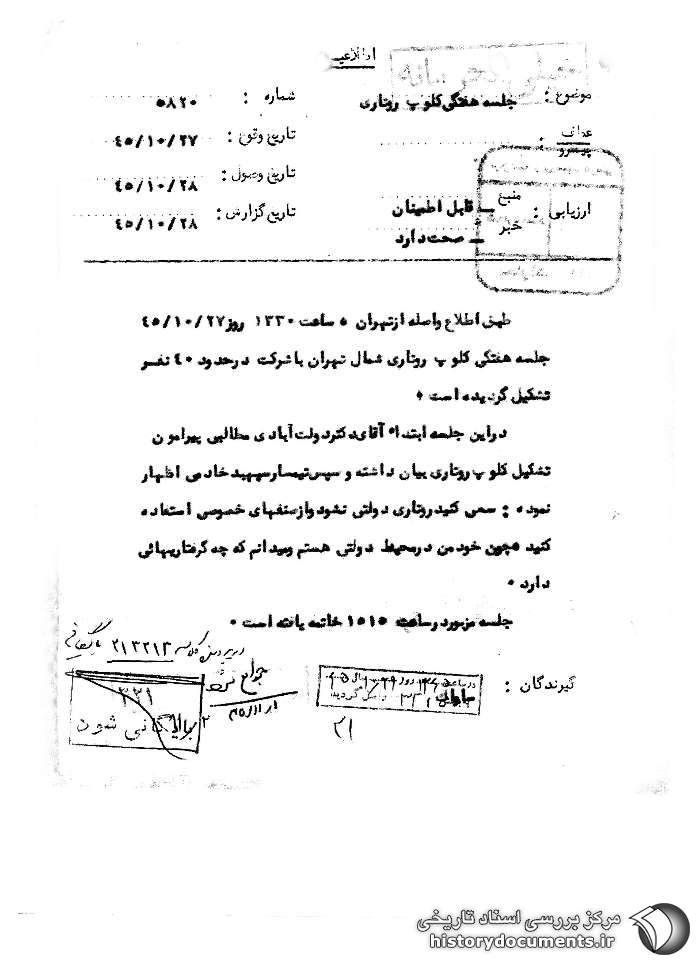 اطلاعیه
خیلی محرمانه
موضوع : جلسه هفتگی کلوپ روتاری
شماره : ۵۸۲۰
عطف :
پیرو
تاریخ وقوع : ۴۵/۱۰/۲۷
تاریخ وصول : ۴۵/۱۰/۲۸
ارزیابی :
منبع ـ قابل اطمینان
خبر ـ صحت دارد
تاریخ گزارش : ۴۵/۱۰/۲۸
طبق اطلاع واصله ازتهران ، ساعت ۱۳۳۰ روز ۴۵/۱۰/۲۷
جلسه هفتگی کلوپ روتاری شمال تهران باشرکت درحدود ۴۰ نفر
تشکیل گردیده است .
دراین جلسه ابتدا، آقای دکتردولت آبادی مطالبی پیرامون
تشکیل کلوپ روتاری بیان داشته و سپس تیمسارسپهبد خادمی اظهار
نموده : سعی کنید روتاری دولتی نشود وازصنفهای خصوصی استفاده
کنید ، چون خودمن درمحیط دولتی هستم ومیدانم که چه گرفتاریهائی
دارد .
جلسه مزبورد رساعت ۱۵۱۵ خاتمه یافته است .
۲۱۳۲۱۳ بایگانی
گیرندگان :
ساواک
۳۲۱
بایگانی شود
۲۱
مرکز بررسی اسناد تاریخی
historydocuments.ir